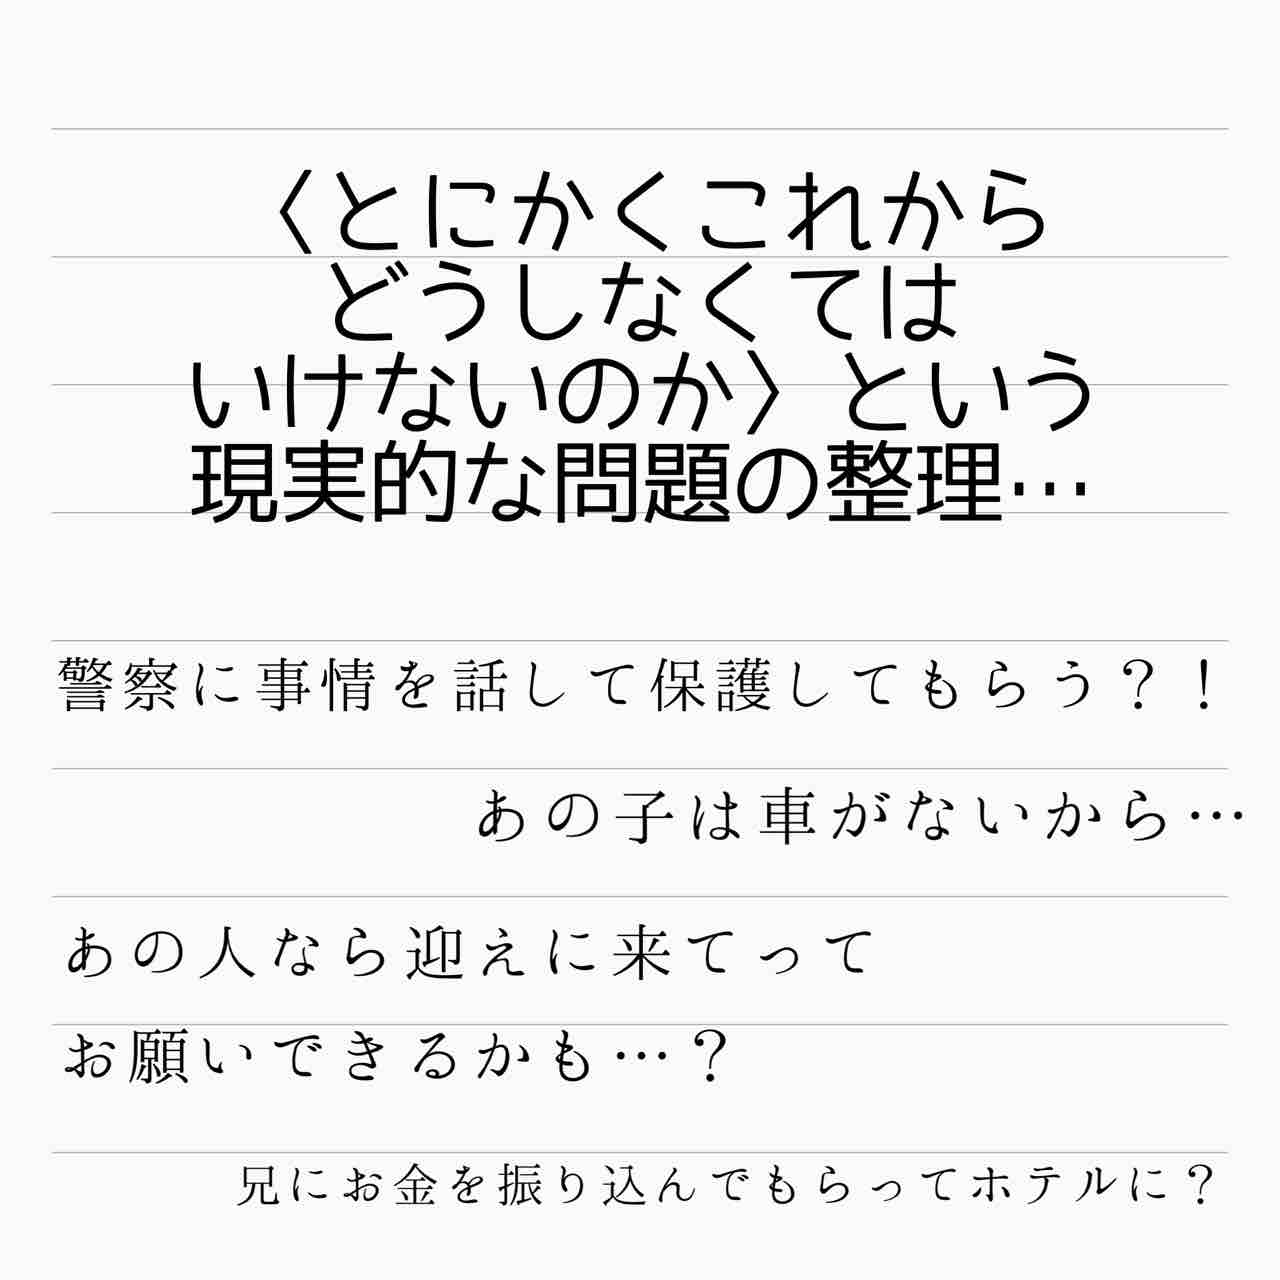 〈とにかくこれから
どうしなくては
いけないのか〉という
現実的な問題の整理…
警察に事情を話して保護してもらう？！
あの子は車がないから…
あの人なら迎えに来てって
お願いできるかも…？
兄にお金を振り込んでもらってホテルに？